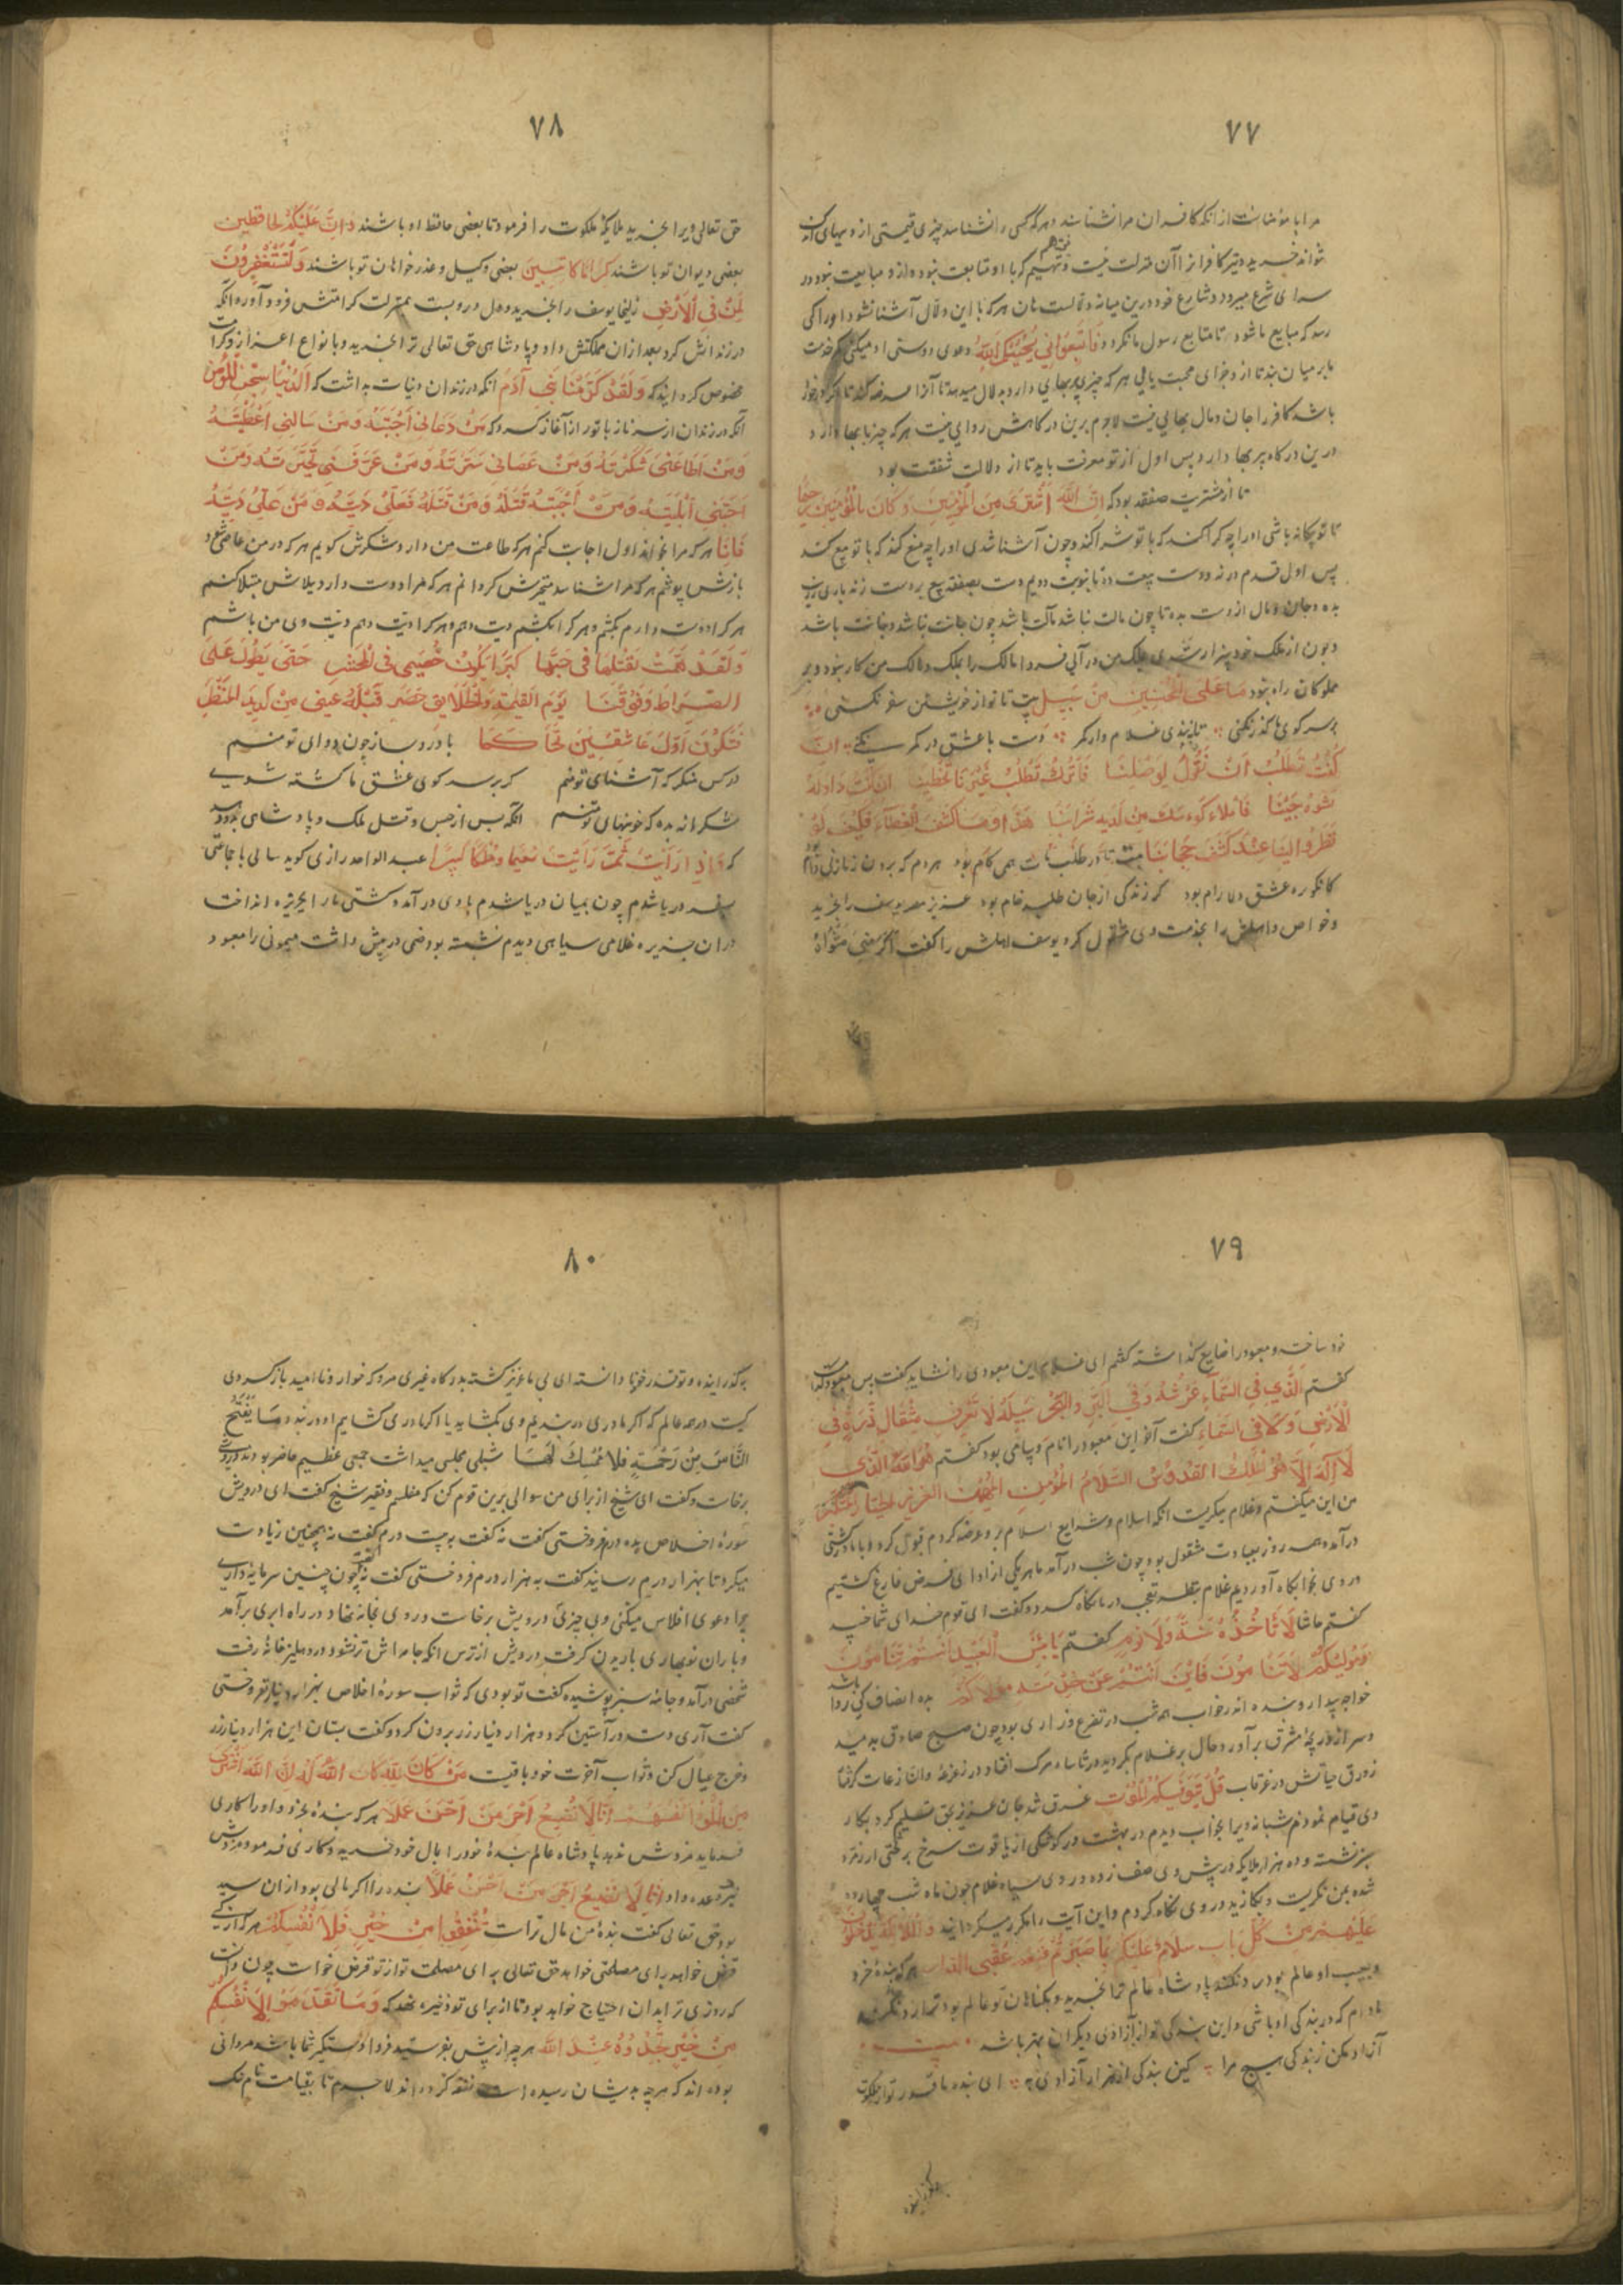 ۷۷
مرا با مؤمنانست از آنکه کافران مرا نشناسند و هرکه کسی را نشناسد چیزی قیمتی از وی بهای
نتواند خرید دیگر کافر از آن منزلت نیست
سرای شرع میرود و شارع خود درین میانه دلالست هان هرکه با این دلال آشنا نشود او را کی
رسد که مبایع ما شود تا متابع رسول ما نکردد فَاتَّبِعُونِي يُحْبِبْكُمُ اللَّهُ دعوی دوستی او میکنی کمر خدمت
بر میان بند تا از وجزای محبت یابی هر که چیزی پربهای دارد به دلال میدهد تا آنرا عرضه کند
باشد کافر را جان و مال بهایی نیست لاجرم برین درکاهش روایی نیست هرکه چیز با بها دارد
درین درکاه پربها دارد پس اول از تو معرفت باید تا از دلالت شفقت بود
تا از مشتریت صفقه بود که اِنَّ اللَّهَ اشْتَرَى مِنَ الْمُؤْمِنِينَ وَكَانَ بِالْمُؤْمِنِينَ رَحِيمًا
تا تو بیکانه باشی او را چه کرا کند که با تو شرا کند و چون آشنا شدی او را چه منع کند که با تو بیع کند
پس اول قدم درنه و دست بیعت ده تا بنوبت دویم دست بصفقه بیع بر دست زند
بده و جان و مال از دست بده تا چون مالت نباشد مآلت باشد چون جانت نباشد جانانت باشد
و چون از ملک خود بیزار شدی بملک من درآیی فردا مالک را بملک و مالک من کار نبود و بر
مملوکان راه نبود مَا عَلَى الْمُحْسِنِينَ مِنْ سَبِيلٍ بیت تا تو از خویشتن سفر نکنی
بر سر کوی ما کذر نکنی تا نبندی غلام وار کمر دست با عشق در کمر نکنی
كُنْتَ تَطْلُبُ اَنْ تَقُولَ لِوَصْلِنَا فَاتْرُكْ تَطْلُبُ غَيْرَنَا
هَذَا وَمَا كَشَفَ الْغِطَاءَ فَكَيْفَ لَوْ
نَظَرُوا اِلَيْنَا عِنْدَ كَشْفِ حِجَابِنَا بیت تا در طلبت همی کام بود هر دم که برون زنیم
کانکو ره عشق دلارام بود کر زندکی از جان طلبد خام بود عزیز مصر یوسف را بخرید
و خواص و اهلش را بخدمت وی مشغول کرد یوسف اهلش را کفت اَكْرِمِي مَثْوَاهُ
۷۸
حق تعالی ویرا بخرید ملایکه ملکوت را فرمود تا بعضی حافظ او باشند وَاِنَّ عَلَيْكُمْ لَحَافِظِينَ
بعضی دیوان تو باشند كِرَامًا كَاتِبِينَ بعضی وکیل و عذرخواهان تو باشند وَيَسْتَغْفِرُونَ
لِمَنْ فِي الْأَرْضِ زلیخا یوسف را بخرید و دل درو بست بمنزلت کرامتش فرود آورد آنکه
در زندانش کرد بعد از آن مملکتش داد و پادشاهی حق تعالی ترا بخرید و با نواع اعزاز و کرامت
مخصوص کردانید که وَلَقَدْ كَرَّمْنَا بَنِي آدَمَ آنکه در زندان دنیات بداشت که اَلدُّنْيَا سِجْنُ الْمُؤْمِنِ
آنکه در زندان از سر ناز با تو راز آغاز کرد که مَنْ دَعَانِي اَجَبْتُهُ وَمَنْ سَأَلَنِي اَعْطَيْتُهُ
وَمَنْ اَطَاعَنِي شَكَرْتُهُ وَمَنْ عَصَانِي سَتَرْتُهُ وَمَنْ عَرَفَنِي حَيَّرْتُهُ وَمَنْ
اَحَبَّنِي اَبْلَيْتُهُ وَمَنْ اَحْبَبْتُهُ قَتَلْتُهُ وَمَنْ قَتَلْتُهُ فَعَلَيَّ دِيَتُهُ وَمَنْ عَلَيَّ دِيَتُهُ
فَاَنَا هرکه مرا بخواند اول اجابت کنم هرکه طاعت من دارد شکرش کویم هرکه در من عاصی شود
بازش پوشم هرکه مرا شناسد متحیرش کردانم هرکه مرا دوست دارد ببلاش مبتلا کنم
هرکرا دوست دارم بکشم و هرکرا بکشم دیت دهم و هرکرا دیت دهم دیت وی من باشم
وَلَقَدْ هَمَمْتُ بِقَتْلِهَا فِي حُبِّهَا كَيْمَا يَكُونَ خَصِيمِي فِي الْمَحْشَرِ حَتَّى يَطُولَ عَلَى
الصِّرَاطِ وُقُوفُنَا يَوْمَ الْقِيٰمَةِ وَالْخَلَايِقُ حُضَّرٌ
فَتَكُونُ اَوَّلَ عَاشِقِينَ تَحَاكَمَا با درد بساز چون دوای تو منم
در کس منکر که آشنای تو منم کر بر سر کوی عشق ما کشته شوی
شکرانه بده که خونبهای تو منم آنکه پس از حبس و قتل ملک و پادشاهی بود
که وَاِذَا رَأَيْتَ ثَمَّ رَأَيْتَ نَعِيمًا وَمُلْكًا كَبِيرًا عبد الواحد رازی کوید سالی با جماعتی
سفر دریا شدم چون بمیان دریا شدم بادی درآمد و کشتی ما را بجزیره انداخت
در آن جزیره غلامی سیاهی دیدم نشسته بود صنمی در پیش داشت میمونی را معبود
۷۹
خود ساخته و معبود را ضایع کذاشته کفتم ای غلام این معبودی را نشاید کفت پس معبود کیست
کفتم اَلَّذِي فِي السَّمَاءِ عَرْشُهُ وَفِي الْبَرِّ وَالْبَحْرِ سَبِيلُهُ لَا يَعْزُبُ مِثْقَالُ ذَرَّةٍ فِي
الْأَرْضِ وَلَا فِي السَّمَاءِ کفت آخر این معبود را نام و پیامی بود کفتم هُوَ اللَّهُ الَّذِي
لَا اِلَهَ اِلَّا هُوَ الْمَلِكُ الْقُدُّوسُ السَّلَامُ الْمُؤْمِنُ الْمُهَيْمِنُ الْعَزِيزُ الْجَبَّارُ الْمُتَكَبِّرُ
من این میکفتم و غلام میکریست آنکه اسلام و شرایع اسلام برو عرضه کردم قبول کرد و با ما در کشتی
درآمد و همه روز بعبادت مشغول بود چون شب درآمد ما هر یکی از ادای فرض فارغ کشتیم
در وی بخوابکاه آوردیم غلام بنظر تعجب در ما نکاه کرد و کفت ای قوم خدای شما خسپد
کفتم حاشا لَا تَأْخُذُهُ سِنَةٌ وَلَا نَوْمٌ کفتم يَا بِئْسَ الْعَبِيدُ اَنْتُمْ تَنَامُونَ
وَمَوْلَيكُمْ لَا يَنَامُ بده انصاف کی روا باشد
خواجه بیدار و بنده اندر خواب همه شب در تضرع و زاری بود چون صبح صادق بدمید
و سر از دریچه مشرق برآورد حال بر غلام بکردید
زورق حیاتش در غرقاب قُلْ يَتَوَفَّيكُمْ مَلَكُ الْمَوْتِ غرق شد جان عزیز بحق تسلیم کرد بکار
وی قیام نمودم شبانه ویرا بخواب دیدم در بهشت در کوشکی از یاقوت سرخ بر تختی از زمرد
سبز نشسته و ده هزار ملایکه در پیش وی صف زده و روی سیاه غلام چون ماه شب چهارده
شده بمن نکریست در وی نکاه کردم و این آیت را مکرر میکردانید وَالْمَلَائِكَةُ يَدْخُلُونَ
عَلَيْهِمْ مِنْ كُلِّ بَابٍ سَلَامٌ عَلَيْكُمْ بِمَا صَبَرْتُمْ فَنِعْمَ عُقْبَى الدَّارِ هرکه بنده خرد
و بعیب او عالم بود رد نکند پادشاه عالم ترا بخرید و بکناهان تو عالم بود
مادام که در بندکی او باشی و این بندکی تو از آزادی دیکران بهتر باشد بیت
آزاد مکن ز بندکی هیچ مرا کین بندکی از هزار آزادی به ای بنده ما قدر تو از ملکوت
بکذرانیده
۸۰
بکذرانیده و تو قدر خود ندانسته ای بی ما عزیز کشته بدرکاه غیری مرو که خوار و ناامید باز کردی
کیست در همه عالم که اکر ما دری دربندیم وی بکشاید یا اکر ما دری کشاییم او دربندد مَا يَفْتَحِ
اللَّهُ لِلنَّاسِ مِنْ رَحْمَةٍ فَلَا مُمْسِكَ لَهَا شبلی مجلس میداشت جمعی عظیم حاضر بودند درویشی
برخاست و کفت ای شیخ از برای من سوالی برین قوم کن که مفلسم و فقیر شیخ کفت ای درویش
سورهٔ اخلاص بده درم فروختی کفت نه کفت به بیست درم کفت نه همچنین زیادت
میکرد تا بهزار درم رسانید کفت به هزار درم فروختی کفت نه کفت چون چنین سرمایه داری
چرا دعوی افلاس میکنی و بی چیزی درویش برخاست و روی بخانه نهاد در راه ابری برآمد
و باران نوبهاری باریدن کرفت درویش از ترس آنکه جامه اش تر نشود در دهلیز خانهٔ رفت
شخصی درآمد و جامهٔ سبز پوشیده کفت تو بودی که ثواب سورهٔ اخلاص بهزار دینار نفروختی
کفت آری دست در آستین کرد و هزار دینار زر برون کرد و کفت بستان این هزار دینار زر
و خرج عیال کن و ثواب آخرت خود باقیست مَنْ كَانَ لِلَّهِ كَانَ اللَّهُ لَهُ اِنَّ اللَّهَ اشْتَرَى
مِنَ الْمُؤْمِنِينَ اَنْفُسَهُمْ اِنَّا لَا نُضِيعُ اَجْرَ مَنْ اَحْسَنَ عَمَلًا هرکه بندهٔ بخرد و او را کاری
فرماید مزدش ندهد پادشاه عالم بندهٔ خود را بمال خود خرید و کاری فرمود و مزدش
نیز وعده داد اِنَّا لَا نُضِيعُ اَجْرَ مَنْ اَحْسَنَ عَمَلًا بنده را اکر مالی بود از آن سید
بود حق تعالی کفت بندهٔ من مال تراست وَمَا تُنْفِقُوا مِنْ خَيْرٍ فَلِأَنْفُسِكُمْ هرکه از کسی
قرض خواهد برای مصلحتی خواهد حق تعالی برای مصلحت تو از تو قرض خواست چون دانست
که روزی ترا بدان احتیاج خواهد بود تا از برای تو ذخیره نهد که وَمَا تُقَدِّمُوا لِأَنْفُسِكُمْ
مِنْ خَيْرٍ تَجِدُوهُ عِنْدَ اللَّهِ هرچه از پیش بفرستید فردا دستکیر شما باشد مردانی
بوده اند که هرچه بدیشان رسیده است نفقه کرده اند لاجرم تا بقیامت نام نیک